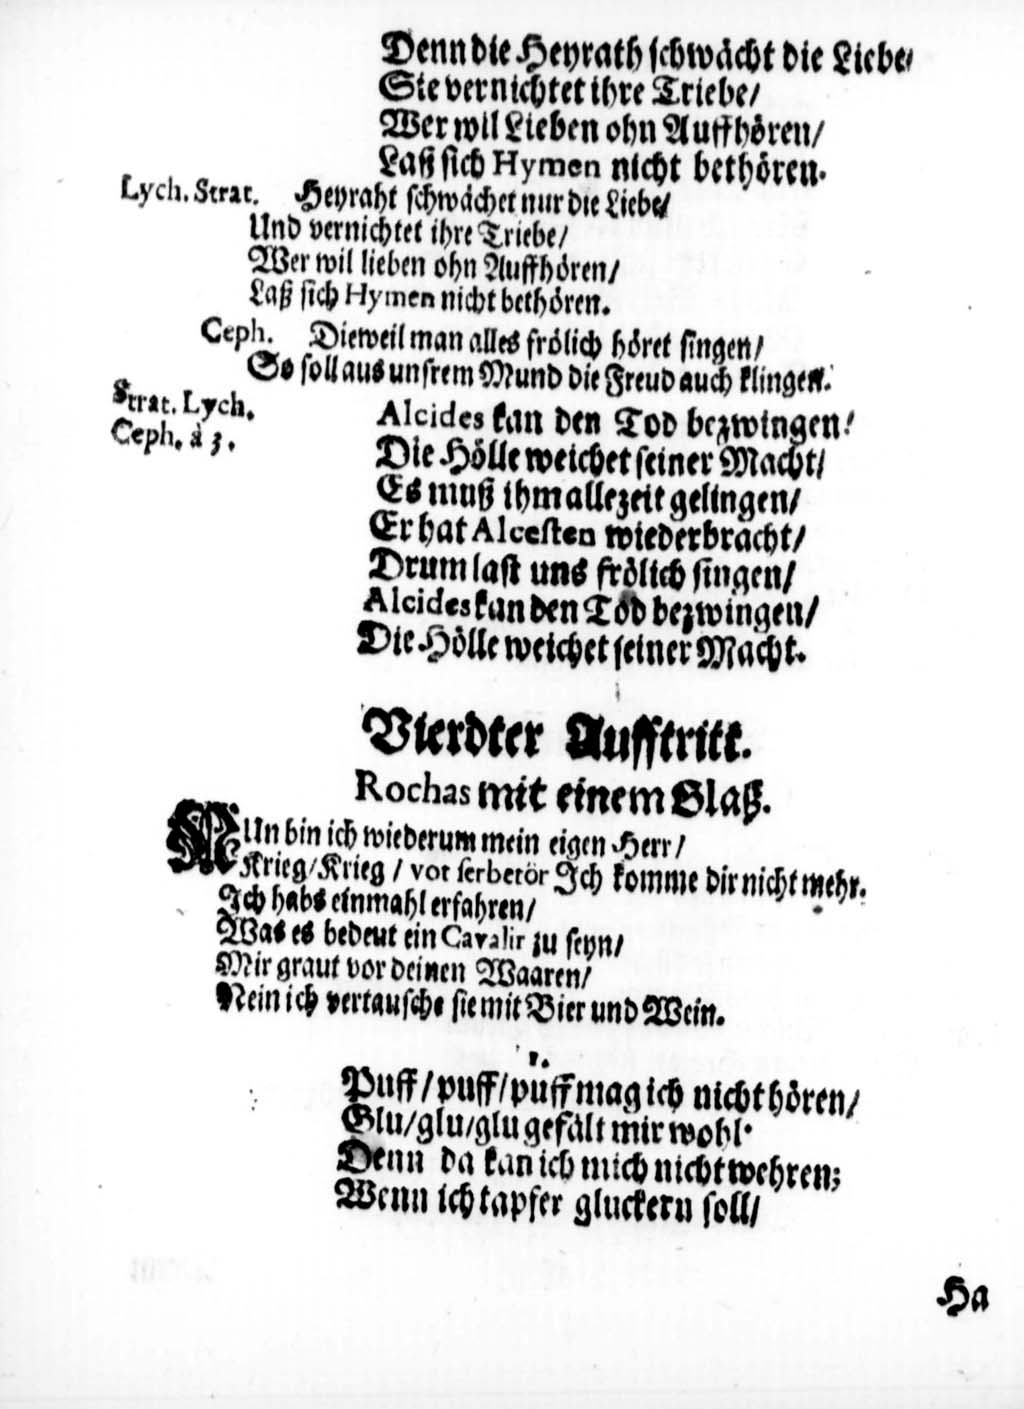 Denn die Heyrath schwächt die Liebe/
Sie vernichtet ihre Triebe/
Wer wil Lieben ohn Auffhören/
Laß sich Hymen nicht bethören.
Lych. Strat. Heyraht schwächet nur die Liebe/
Und vernichtet ihre Triebe/
Wer wil lieben ohn Auffhören/
Laß sich Hymen nicht bethören.
Ceph. Dieweil man alles frölich höret singen/
So soll aus unsrem Mund die Freud auch klingen.
Strat. Lych.
Ceph. à 3.
Alcides kan den Tod bezwingen!
Die Hölle weichet seiner Macht/
Es muß ihm allezeit gelingen/
Er hat Alcesten wiederbracht/
Drum last uns frölich singen/
Alcides kan den Tod bezwingen/
Die Hölle weichet seiner Macht.
Vierdter Aufftritt.
Rochas mit einem Glaß.
NUn bin ich wiederum mein eigen Herr/
Krieg/Krieg / vot serbetör Ich komme dir nicht mehr.
Ich habs einmahl erfahren/
Was es bedeut ein Cavalir zu seyn/
Mir graut vor deinen Waaren/
Nein ich vertausche sie mit Bier und Wein.
1.
Puff/puff/puff mag ich nicht hören/
Glu/glu/glu gefält mir wohl.
Denn da kan ich mich nicht wehren;
Wenn ich tapfer gluckern soll/
Ha